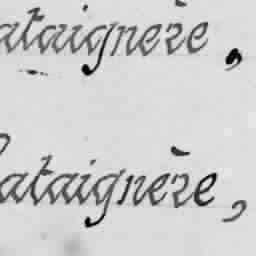 ataignère,
ataignère,